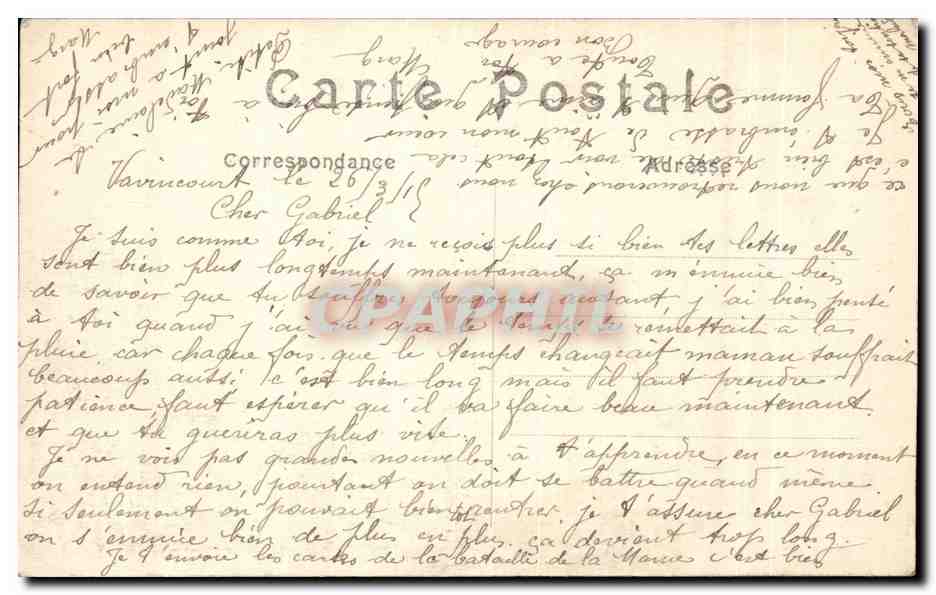 Carte Postale
Correspondance
Adresse
Vavincourt le 26/3/15
Cher Gabriel
Je suis comme toi, je ne reçois plus si bien tes lettres elles
sont bien plus longtemps maintenant, ça m'ennuie bien
de savoir que tu souffres toujours autant, j'ai bien pensé
à toi quand j'ai vu que le temps se remettait à la
pluie, car chaque fois que le temps changeait maman souffrait
beaucoup aussi, c'est bien long mais il faut prendre
patience, faut espérer qu'il va faire beau maintenant,
et que tu guériras plus vite.
Je ne vois pas grandes nouvelles à t'apprendre, en ce moment
on entend rien, pourtant on doit se battre quand même
si seulement on pouvait bien rentrer, je t'assure cher Gabriel
on s'ennuie bien de plus en plus, ça devient trop long.
Je t'envoie les cartes de la bataille de la Marne c'est bien
ce que nous retrouverons chez nous
c'est bien triste de voir tout cela.
Je t'embrasse de tout mon cœur
Ta femme qui pense à toi
Toute à toi
Marg
Bon courage
Petite Madeleine te
joint à moi pour
t'embrasser
bien fort
Marg
CPAPHIL